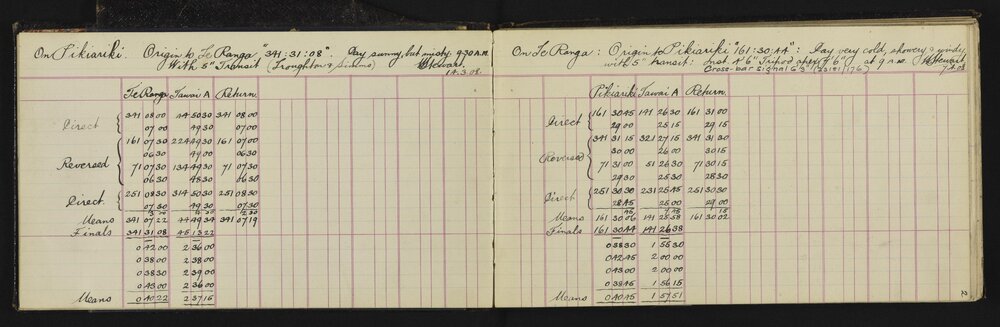 On Pikiariki. Origin to Te Ranga "341:31:08". Day sunny, but misty. 9-30 A.M.
With 5" Transit (Troughton & Simms) Stewart.
14.3.08.
Te Ranga Tawai A Return.
Direct { 341 08 00 44 50 30 341 08 00
07 00 49 30 07 00
Reversed { 161 07 30 224 49 30 161 07 00
06 30 49 00 06 30
71 07 30 134 49 30 71 07 30
06 30 48 30 06 30
Direct { 251 08 30 314 50 30 251 08 30
07 30 49 30 07 30
Means 341 07 22 44 49 34 341 07 19
Finals 341 31 08 45 13 22
0 42 00 2 36 00
0 38 00 2 38 00
0 38 30 2 39 00
0 43 00 2 36 00
Means 0 40 22 2 37 15
On Te Ranga: Origin to Pikiariki "161:30:44": Day very cold, showery & windy,
with 5" transit: Inst. 4' 6" Tripod at 9 a.m. Stewart.
Cross-bar Signal 7.4.08
Pikiariki Tawai A Return.
Direct { 161 30 45 141 26 30 161 31 00
29 00 25 15 29 15
Reversed { 341 31 15 321 27 15 341 31 30
30 00 26 00 30 15
71 31 00 51 26 30 71 30 15
29 30 25 30 28 30
Direct { 251 30 30 231 25 45 251 30 30
28 45 25 00 29 00
Means 161 30 06 141 25 58 161 30 02
Finals 161 30 44 141 26 38
0 38 30 1 55 30
0 42 45 2 00 00
0 43 00 2 00 00
0 38 45 1 56 15
Means 0 40 45 1 57 51
2